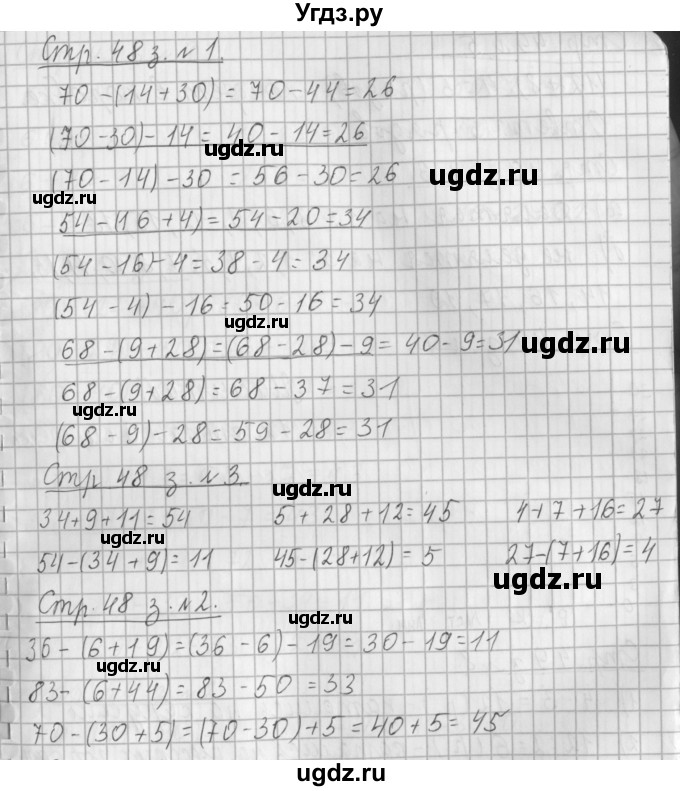 Угдз.ру
Стр. 48 з. №1.
70-(14+30)=70-44=26
(70-30)-14=40-14=26
ugdz.ru
(70-14)-30=56-30=26
ugdz.ru
ugdz.ru
54-(16+4)=54-20=34
(54-16)-4=38-4=34
(54-4)-16=50-16=34
ugdz.ru
68-(9+28)=(68-28)-9=40-9=31
ugdz.ru
68-(9+28)=68-37=31
ugdz.ru
(68-9)-28=59-28=31
Стр. 48 з. №3.
ugdz.ru
34+9+11=54 5+28+12=45 4+7+16=27
ugdz.ru
54-(34+9)=11 45-(28+12)=5 27-(7+16)=4
ugdz.ru
Стр. 48 з. №2.
ugdz.ru
36-(6+19)=(36-6)-19=30-19=11
ugdz.ru
83-(6+44)=83-50=33
70-(30+5)=(70-30)+5=40+5=45
ugdz.ru